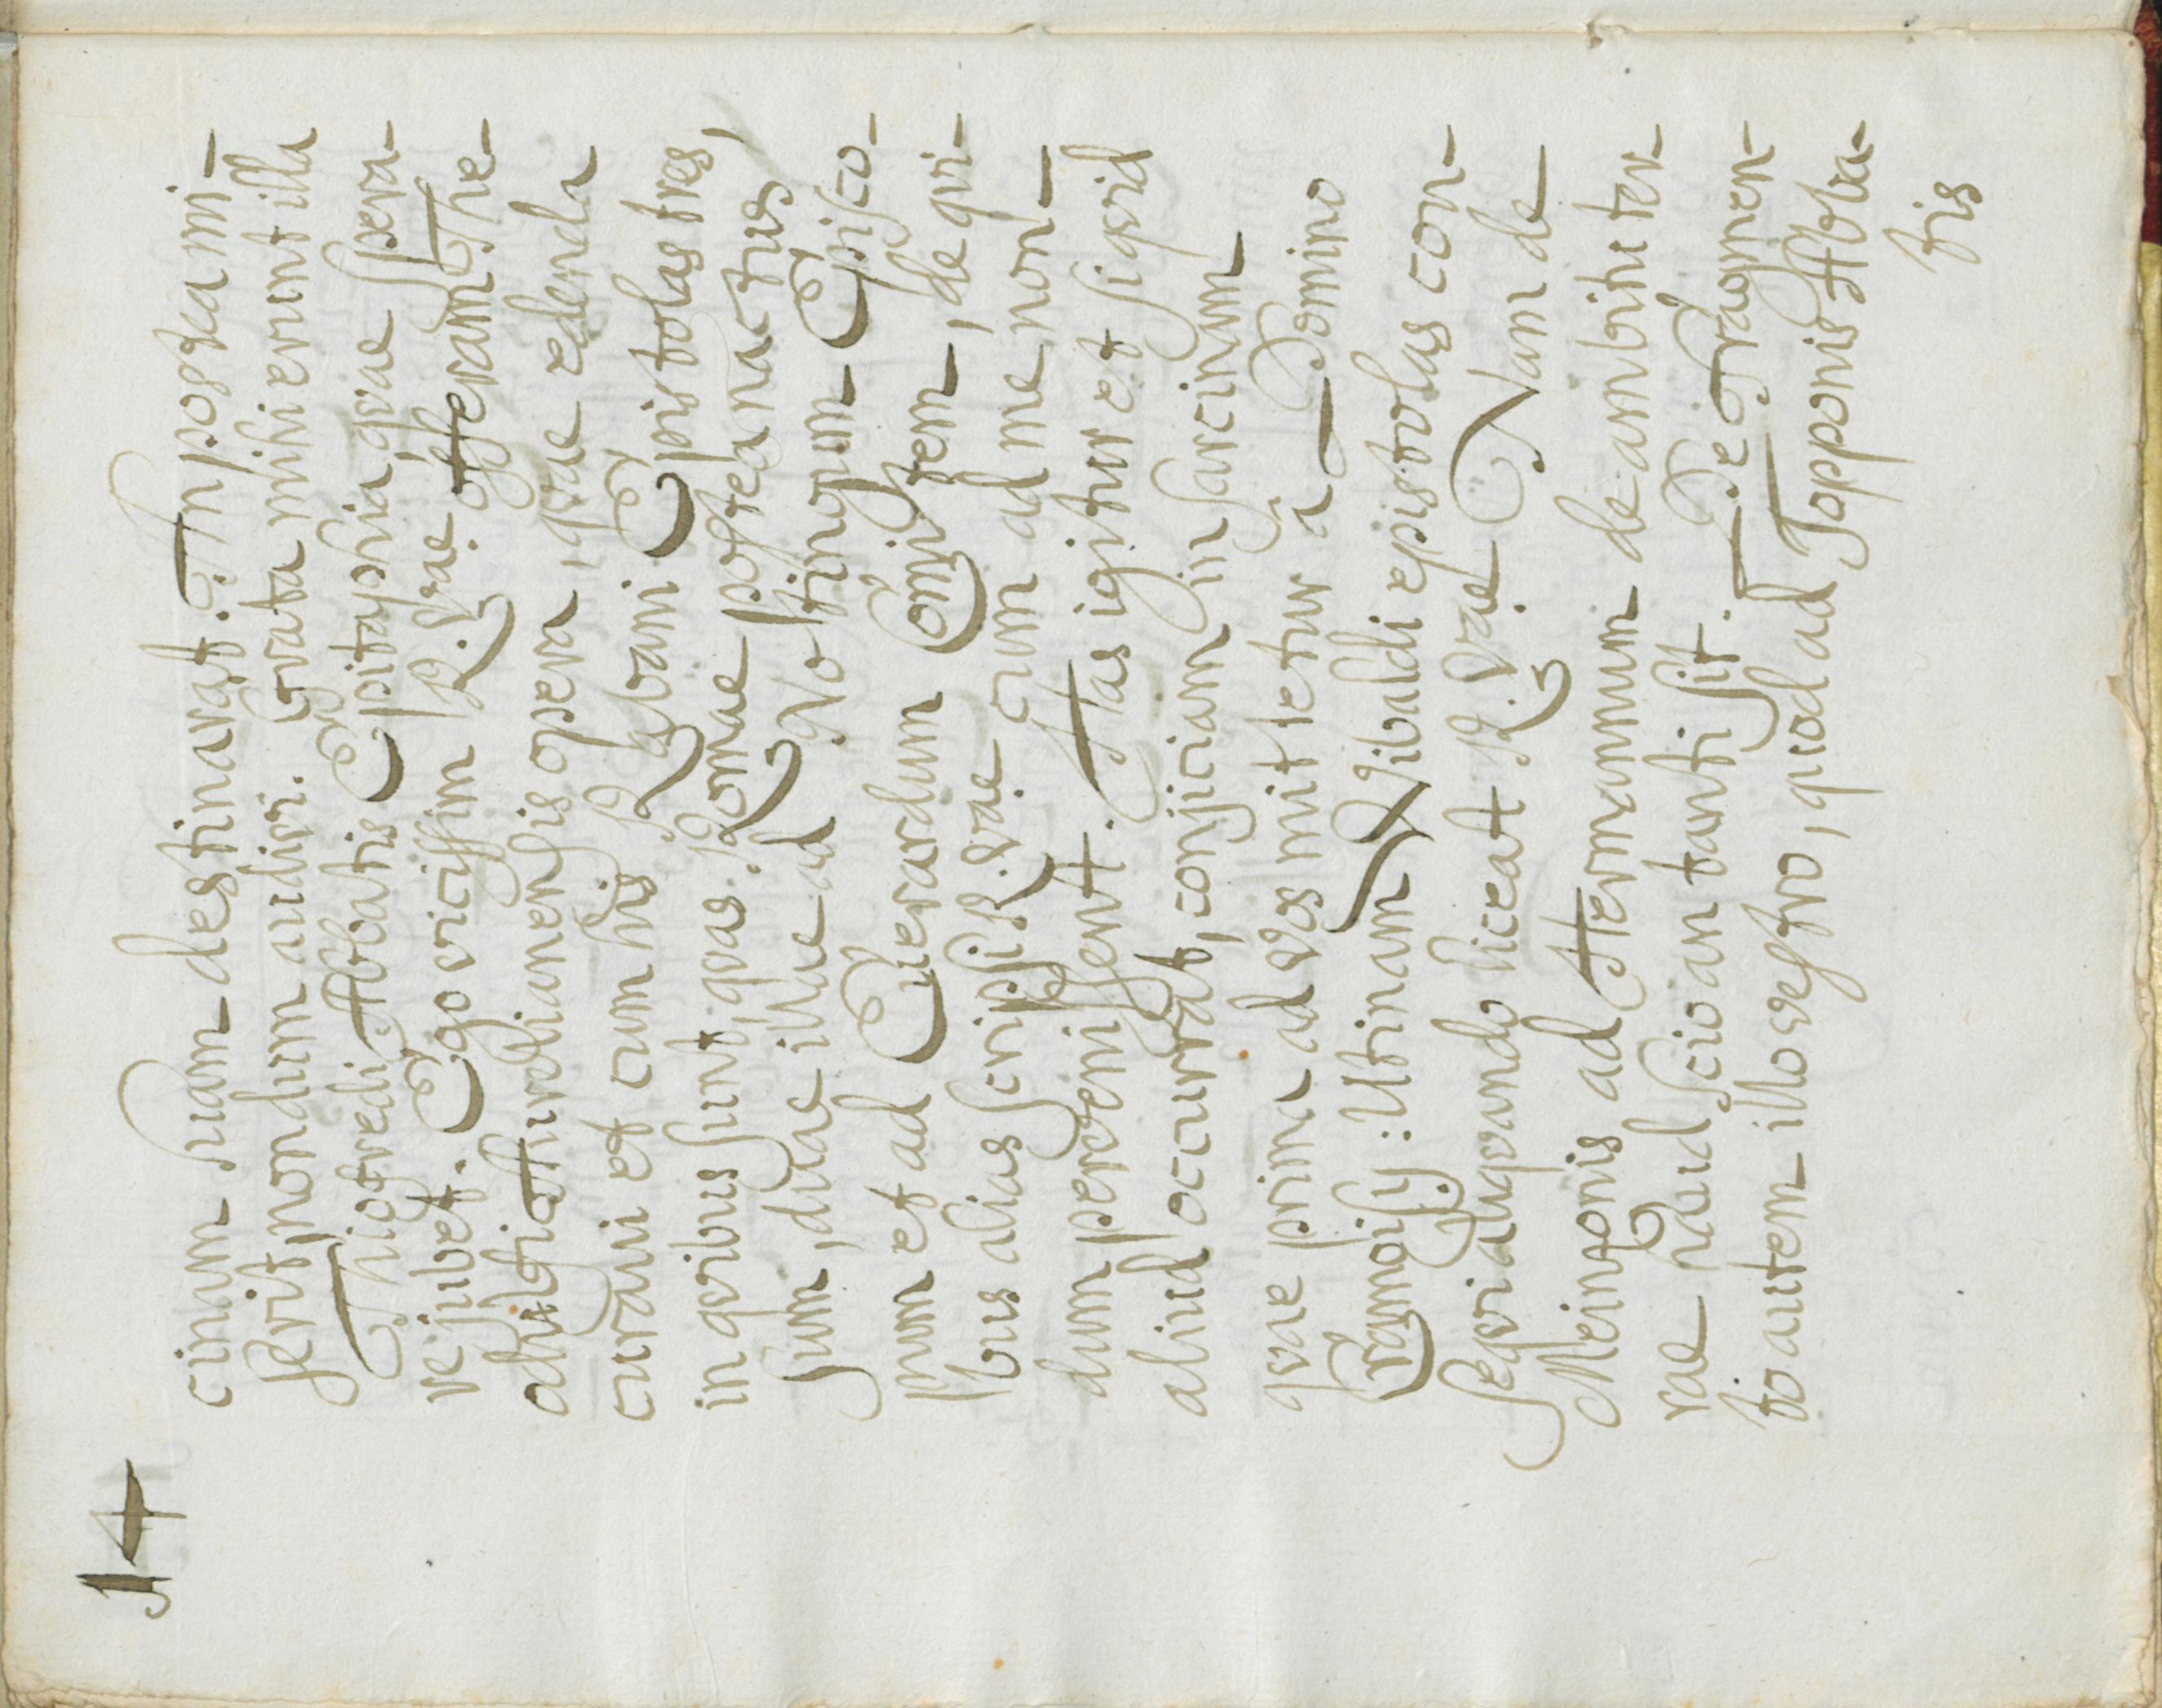 14
cinam suam destinarat. An postea mi-
serit, nondum audivi. Grata mihi erunt illa
Thiofredi Abbatis Epitaphia, qvae spera-
re jubet. Ego vicissim R. Vae offeram The-
odulfi Aurelianensis opera, qvae edenda
curavi et cum his Rabani Epistolas tres,
in qvibus sunt, qvas Romae postea nactus
sum, duae illae ad Notingum Episco-
pum et ad Eberardum Comitem, de qvi-
bus alias scripsi R. Vae cum ad me non-
dum pervenissent. Has igitur et siqvid
aliud occurrat, conjiciam in sarcinam
qvae prima ad Vos mittetur a Domino
Cramoisÿ. Utinam Wibaldi epistolas con-
seqvi aliqvando liceat R. Vae Nam de
Meingonis ad Hermannum de ambitu ter-
rae haud scio an tanti sit. De Fragmen-
to autem illo vestro, quod ad Popponis Abba-
tis